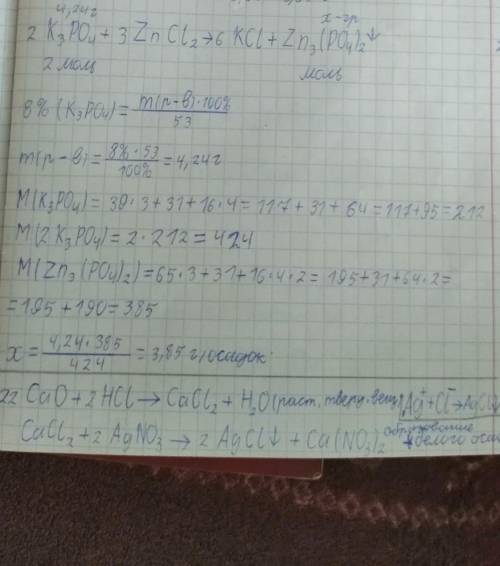 4,24г x-гр
2 K₃PO₄ + 3 ZnCl₂ → 6 KCl + Zn₃(PO₄)₂↓
2 моль моль
8% (K₃PO₄) = m(р-в)·100% / 53
m(р-в) = 8%·53 / 100% = 4,24г
M(K₃PO₄) = 39·3+31+16·4 = 117+31+64 = 117+95 = 212
M(2K₃PO₄) = 2·212 = 424
M(Zn₃(PO₄)₂) = 65·3+31+16·4·2 = 195+31+64·2 =
= 195+190 = 385
x = 4,24·385 / 424 = 3,85 г/осадок
CaO + 2HCl → CaCl₂ + H₂O (раст. тверд. вещ.) Ag⁺ + Cl⁻ → AgCl↓
CaCl₂ + 2AgNO₃ → 2AgCl↓ + Ca(NO₃)₂ образование
белого оса